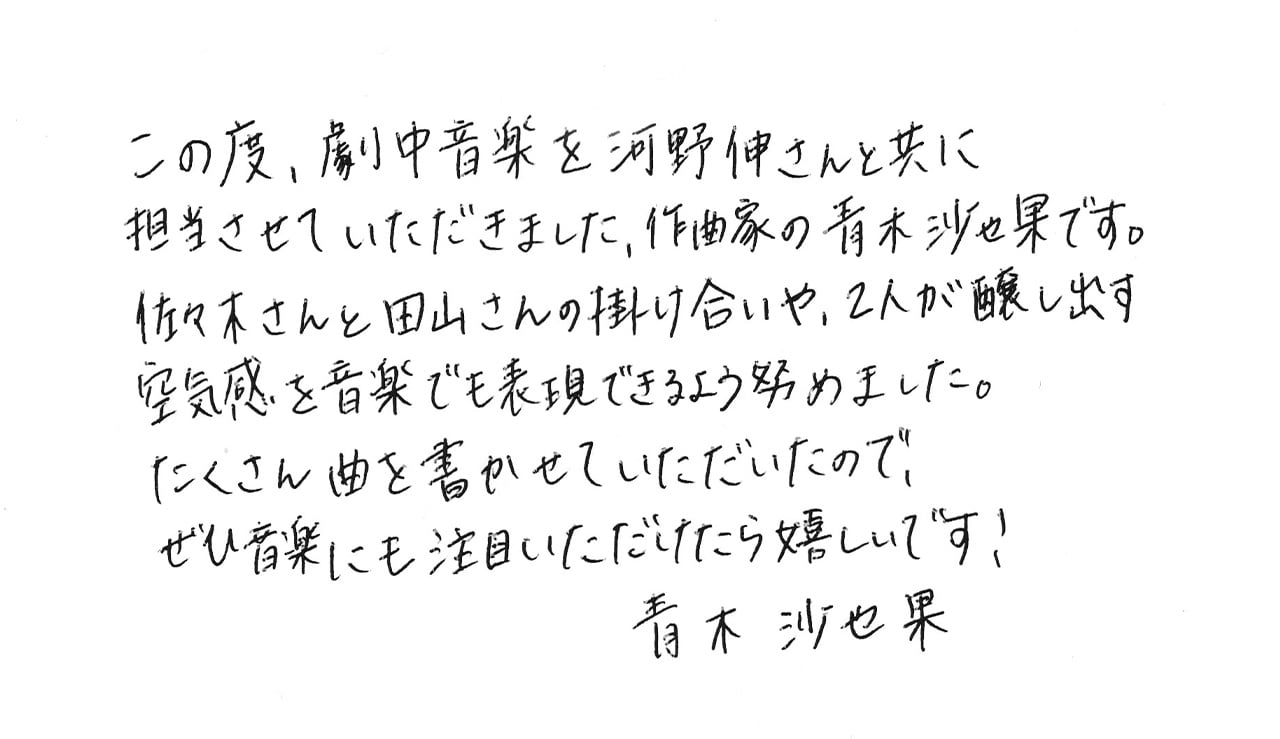 この度、劇中音楽を河野伸さんと共に
担当させていただきました、作曲家の青木沙也果です。
佐々木さんと田山さんの掛け合いや、2人が醸し出す
空気感を音楽でも表現できるよう努めました。
たくさん曲を書かせていただいたので、
ぜひ音楽にも注目いただけたら嬉しいです!
青木 沙也果